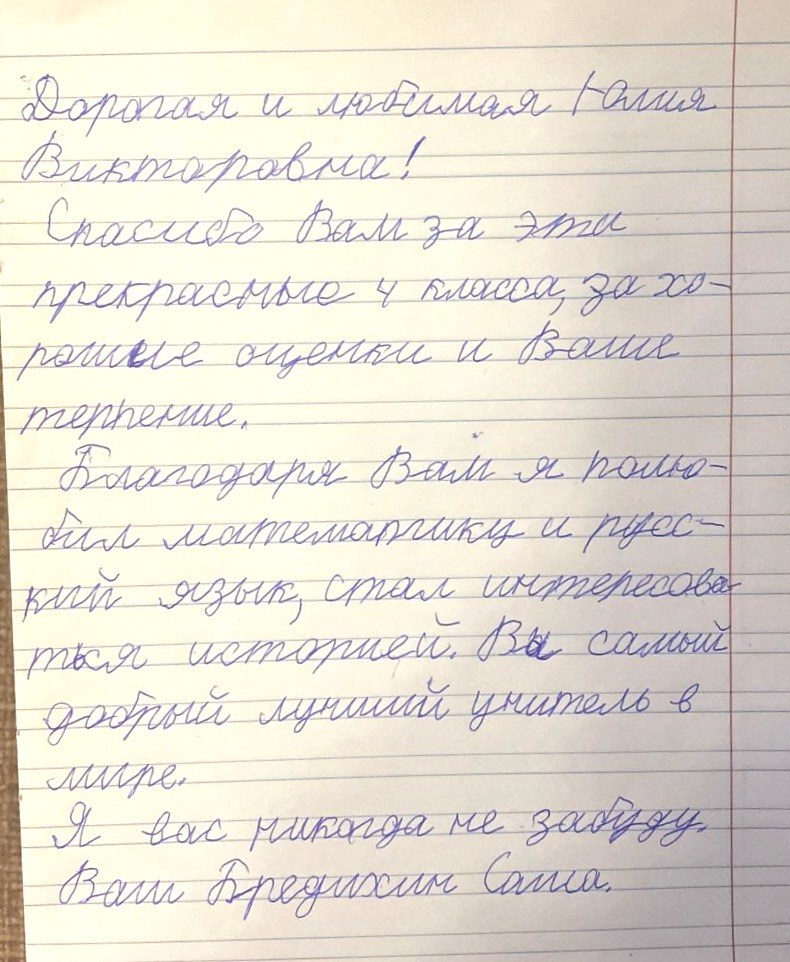 Дорогая и любимая Юлия
Викторовна!
Спасибо Вам за эти
прекрасные 4 класса, за хо-
рошие оценки и Ваше
терпение.
Благодаря Вам я полю-
бил математику и русс-
кий язык, стал интересова-
ться историей. Вы самый
добрый лучший учитель в
мире.
Я вас никогда не забуду.
Ваш Бредихин Саша.